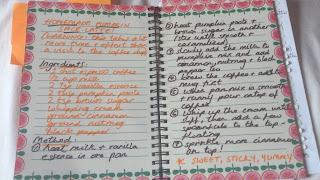 HOMEMADE PUMPKIN
SPICE LATTE!
WARNING: this takes a lot
more time + effort than
a visit to the coffee shop
Ingredients:
1 shot espresso coffee
1 cup milk
2 tsp vanilla essence
2 tbsp pumpkin paste
2 tsp brown sugar
whipping cream
ground cinnamon
ground nutmeg
black pepper
Method:
① heat milk + vanilla
essence in one pan
② heat pumpkin paste +
brown sugar in another
pan until smooth +
caramelised
③ slowly add the milk to
pumpkin mix and add
cinnamon, nutmeg + black
pepper too
④ brew the coffee + add to
mug first
⑤ whisk pan mix is smooth
+ runny pour ontop of
coffee
⑥ whip up the cream until
stiff then add a few
spoonfuls to the top -
floating
⑦ sprinkle more cinnamon
on top!
* SWEET, STICKY, YUMMY